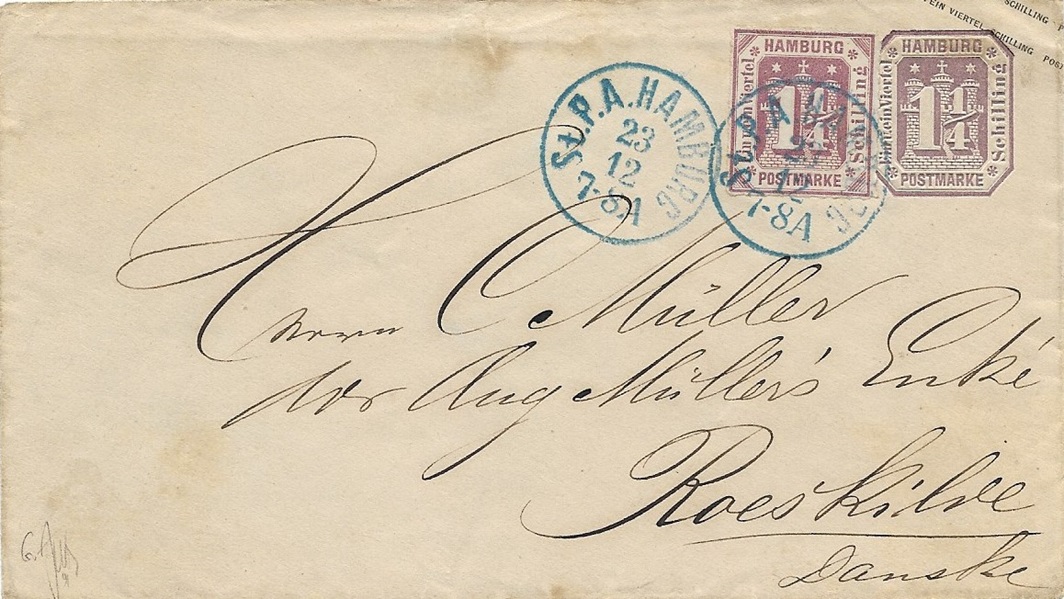 SCHILLING P
EIN VIERTEL SCHILLING POST
HAMBURG
Ein u ein Viertel
1 1/4
Schilling
POSTMARKE
HAMBURG
Ein u ein Viertel
1 1/4
Schilling
POSTMARKE
St.P.A. HAMBURG
23
12
7-8A
St.P.A. HAMBURG
23
12
7-8A
Herrn C Müller
Aug Müller's Enke
Roeskilde
Danske